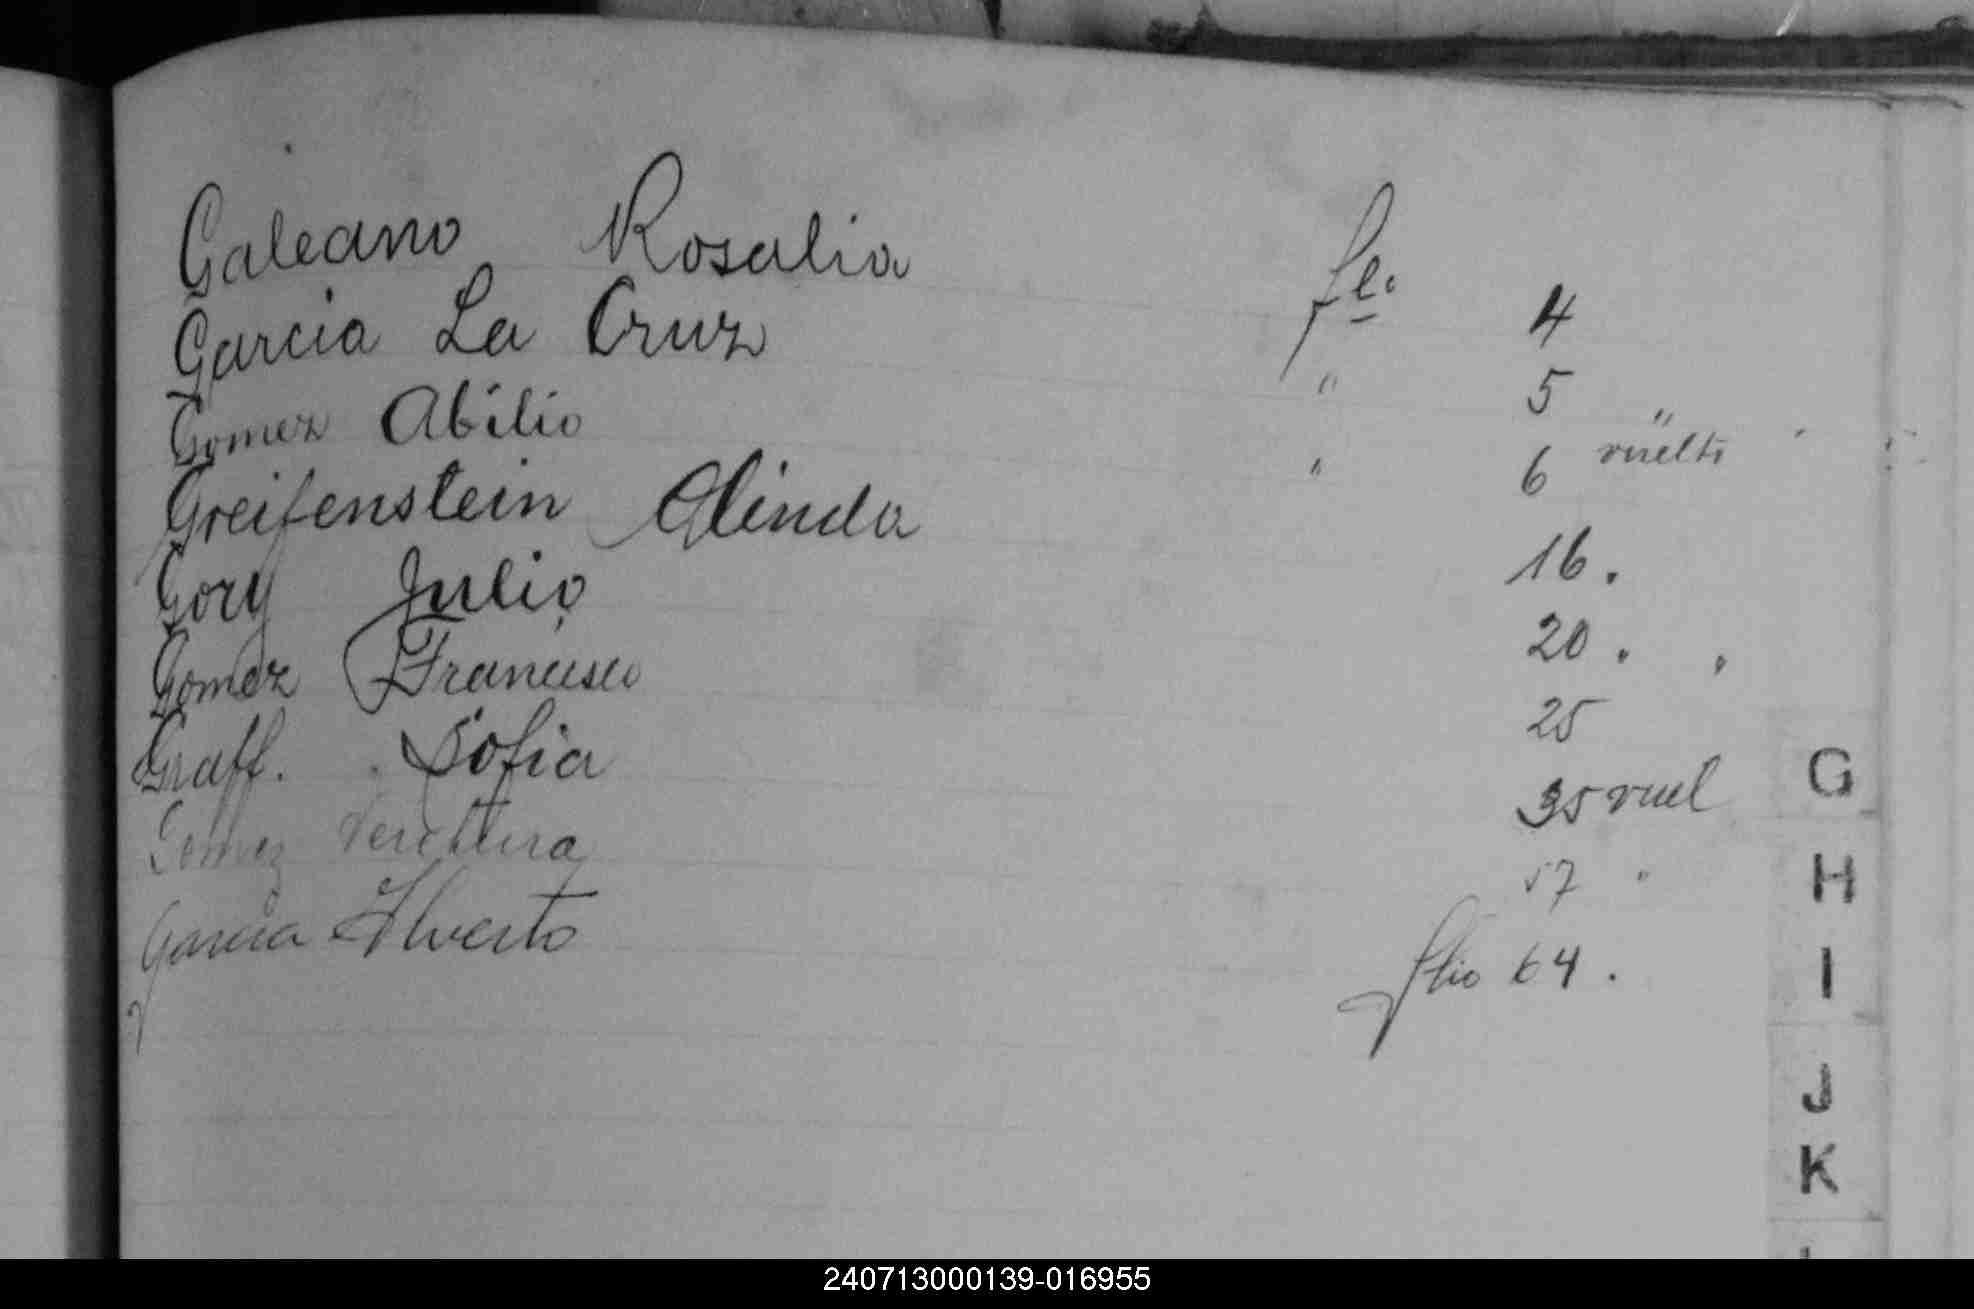 Galeano Rosalia fl. 4
Garcia La Cruz " 5 "
Gomez Abilio " 6 vuelti
Greifenstein Olinda 16.
Gory Julio 20 . .
Gomez Francisco 25
Graff. Sofia 35 vuel
Gomez Ventura 57 "
Garcia Alverto flio 64 .
G
H
I
J
K
240713000139-016955